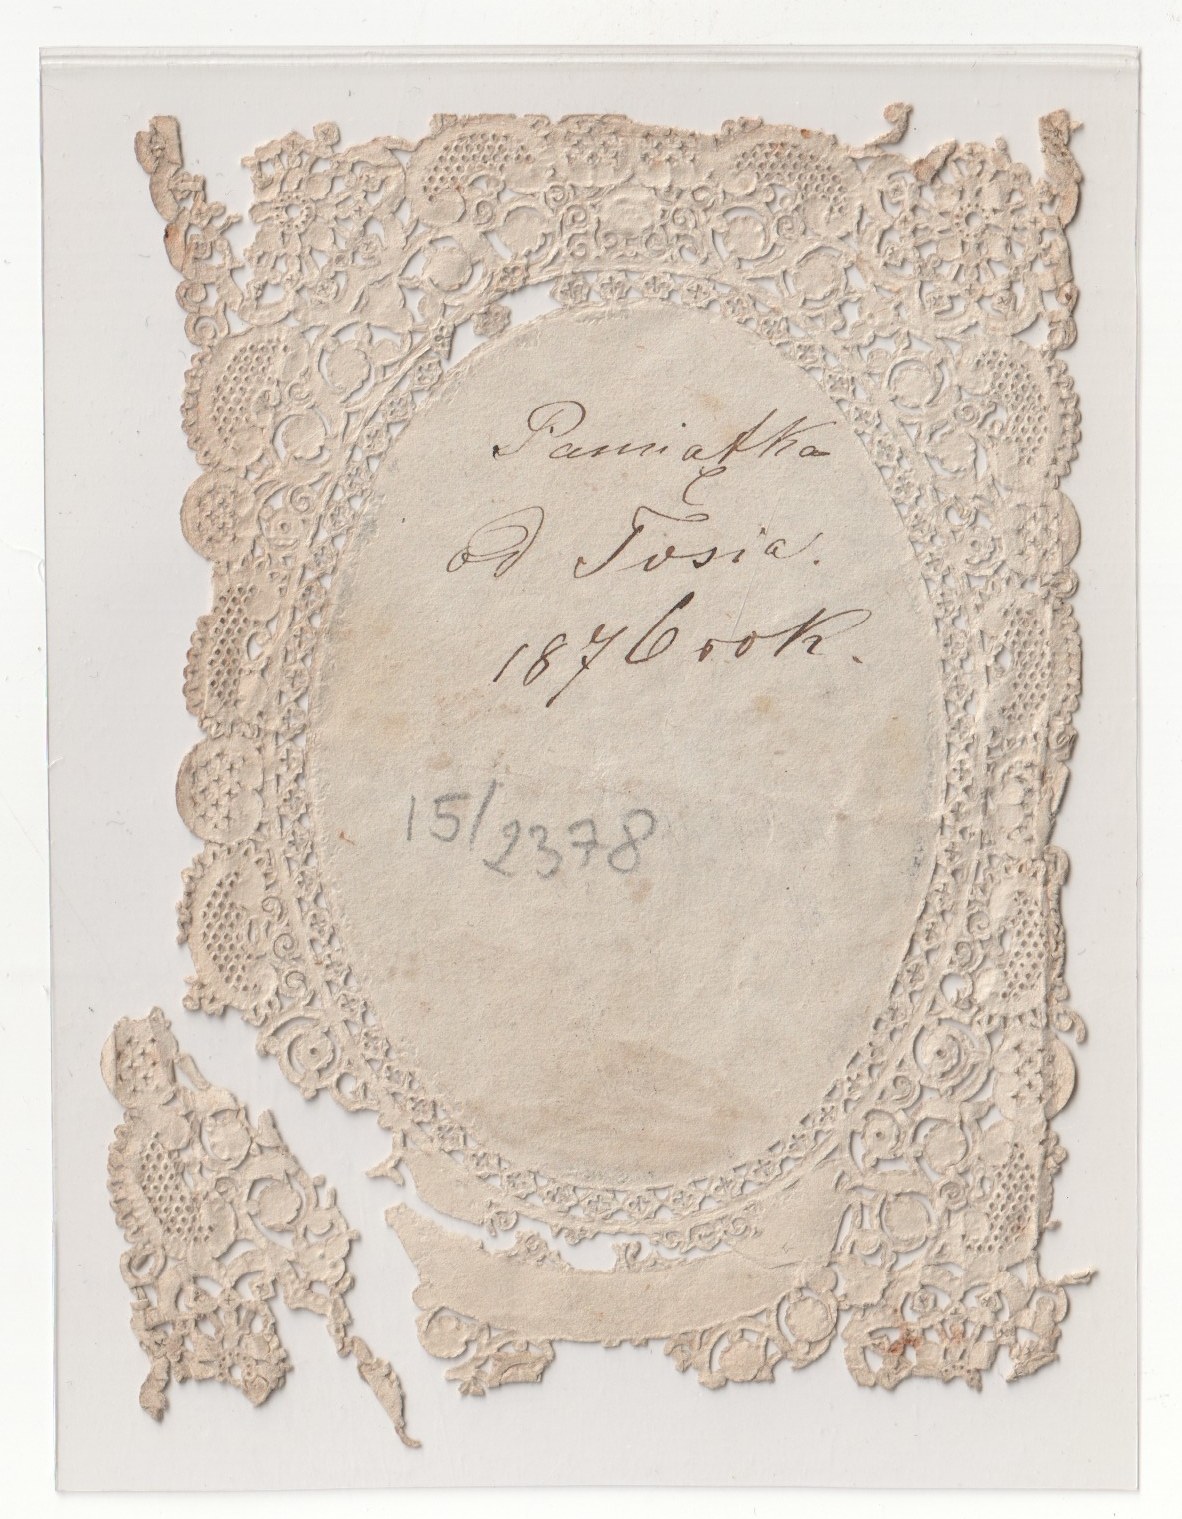 Pamiątka
od Tosia.
1876 rok.
15/2378